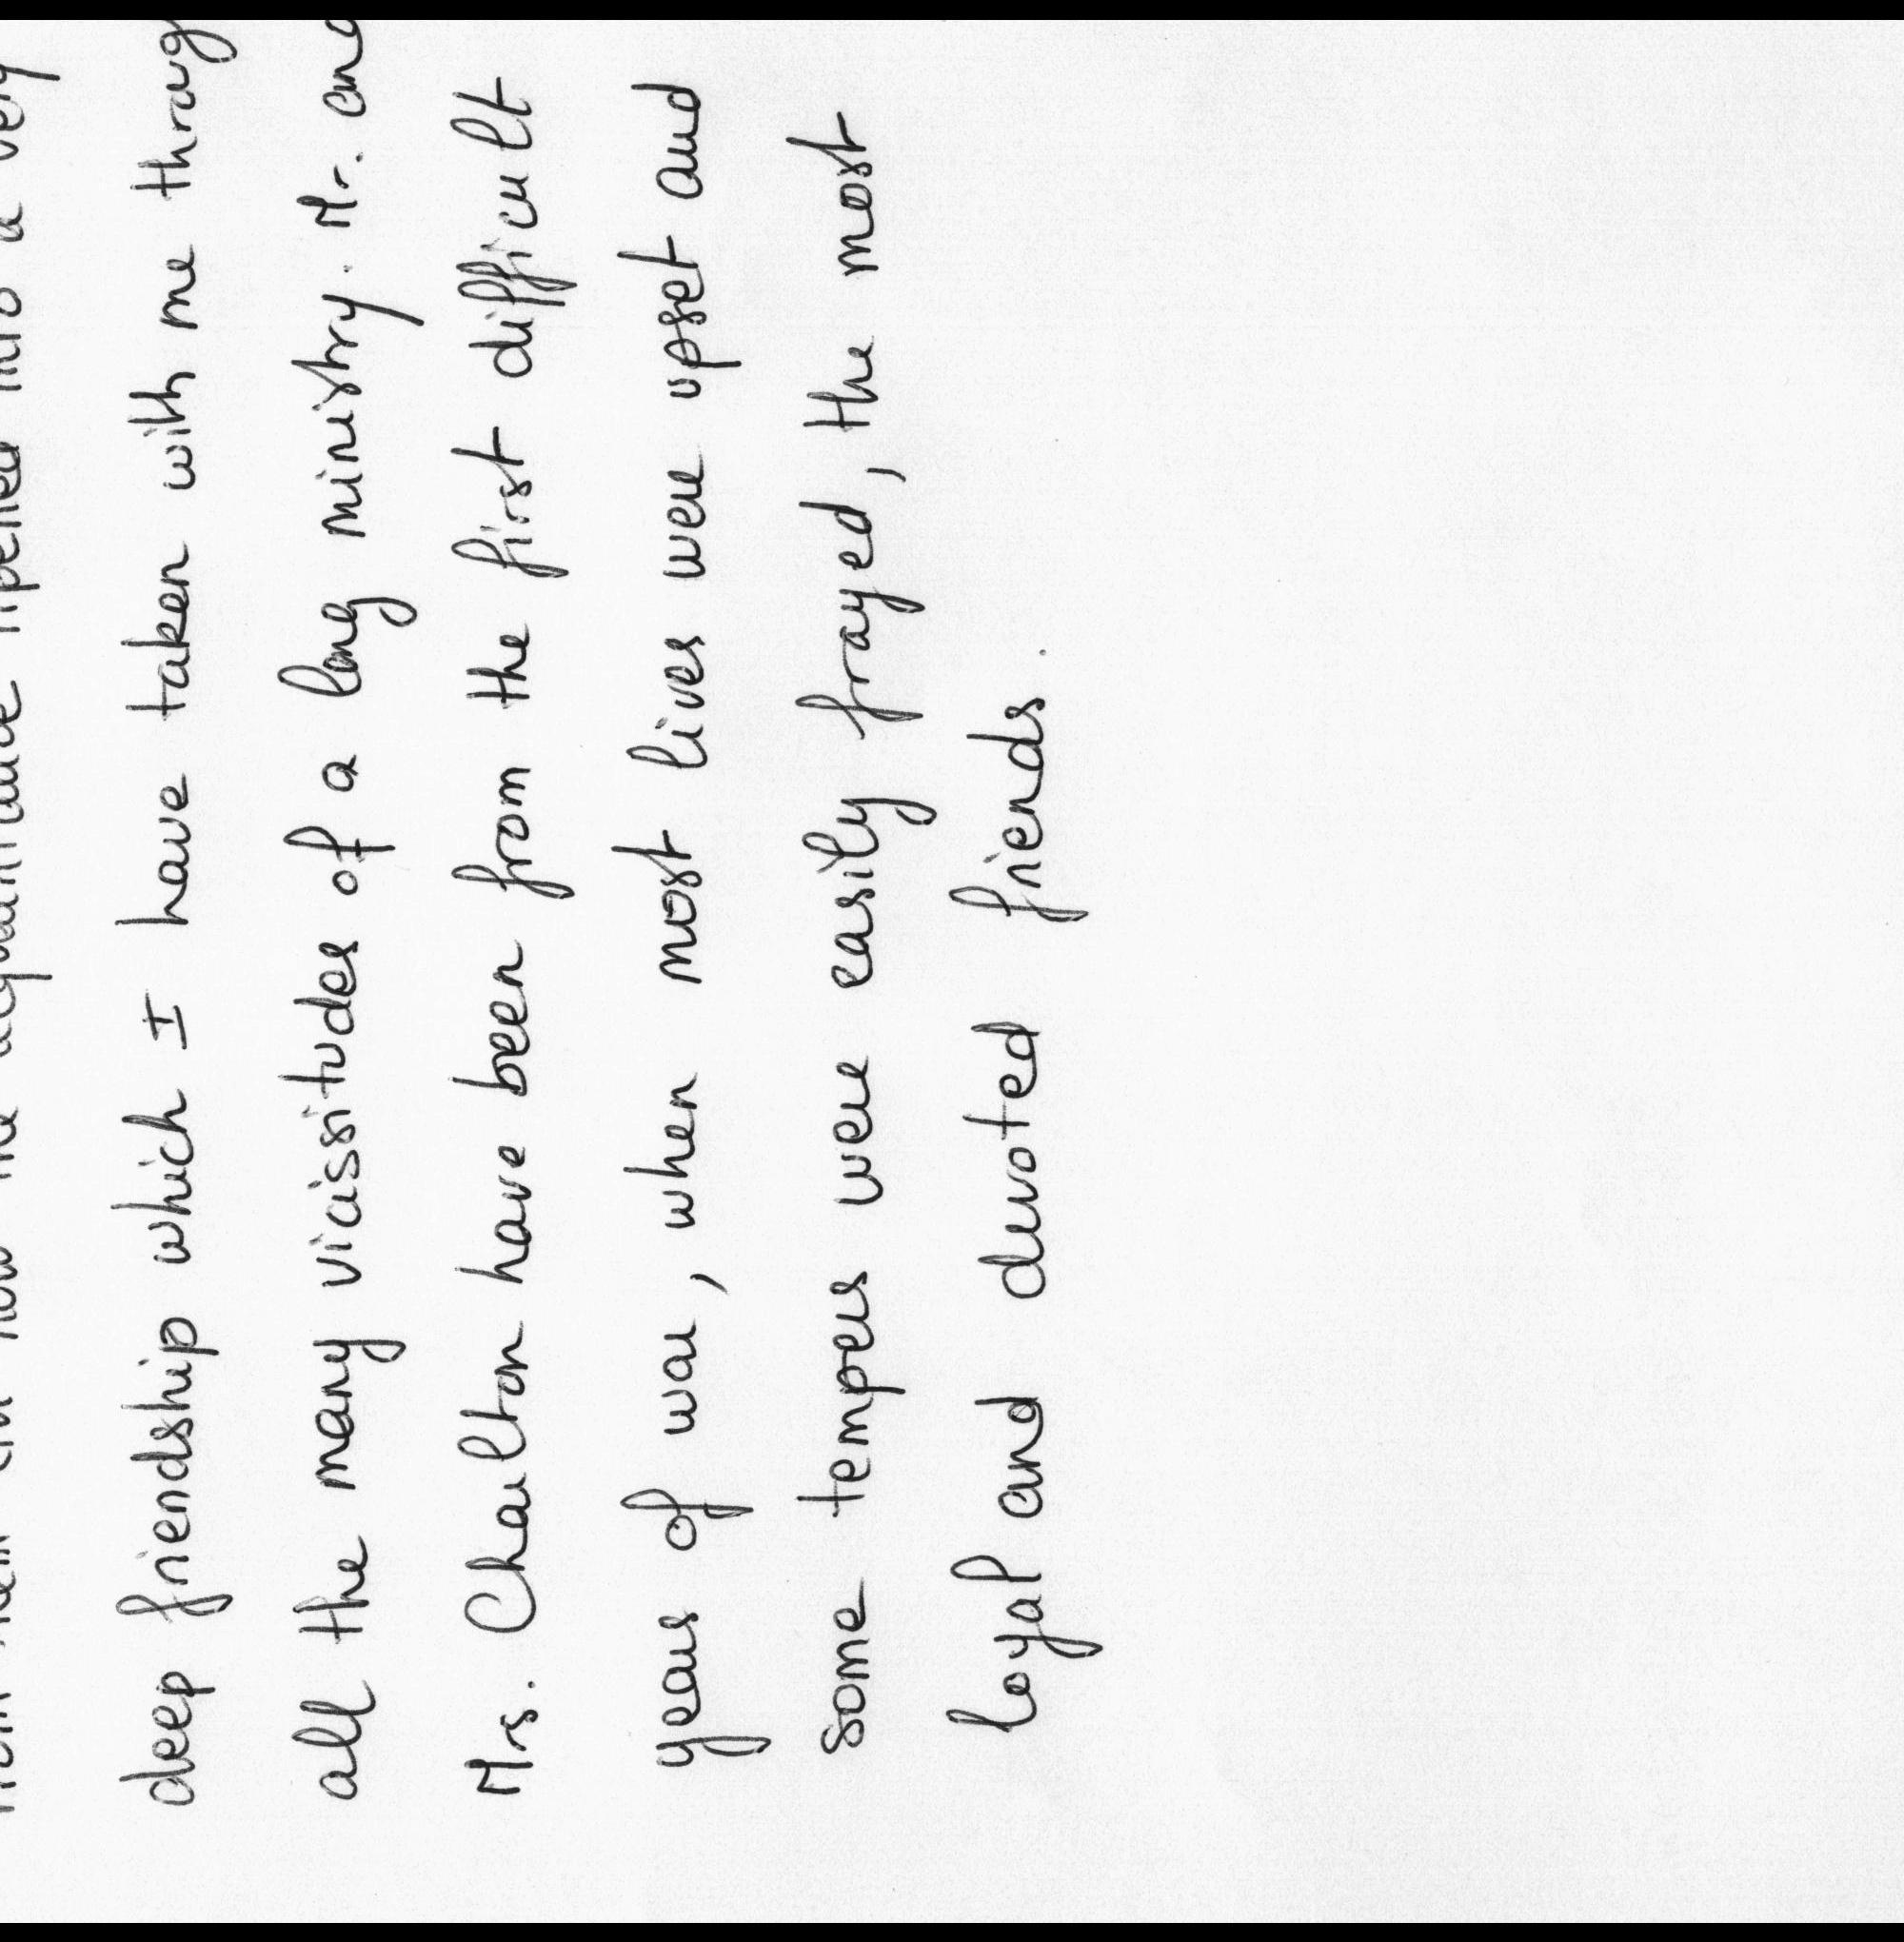 acquaintance ripened into a very
deep friendship which I have taken with me throug
all the many vicissitudes of a long ministry. Mr. and
Mrs. Charlton have been from the first difficult
years of war, when most lives were upset and
some tempers were easily frayed, the most
loyal and devoted friends.